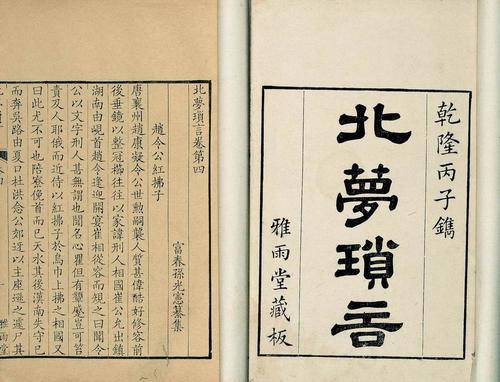 乾隆丙子鐫
北夢瑣言
雅雨堂藏板
北夢瑣言卷第四
富春孫光憲纂集
趙令公紅拂子
唐襄州趙康凝令公世勲嗣襲人質甚偉酷好修容前
後垂鏡以整冠櫛往往以家諱刑人相國崔公允出鎮
湖南由峴首趙令逢迎開宴崔相從容而規之曰聞令
公以文字刑人甚無謂也聞名心瞿但有顰蹙豈可笞
責及人耶俄而近侍以紅拂子於烏巾上拂之相國又
曰此尤不可也陪寮俛首而已天水其後漢南失守已
而奔吳路由夏口杜洪念公郊迓以主座遜之遲尸其
雅雨堂